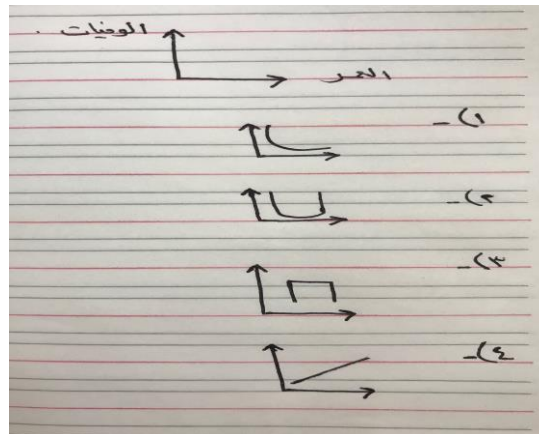 الوفيات .
العمر
١) -
٢) -
٣) -
٤) -